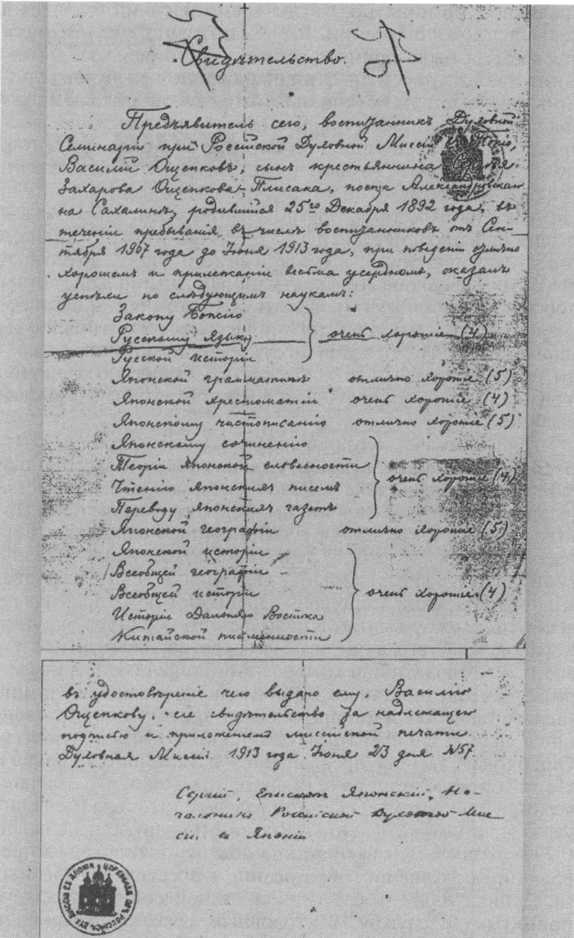 Свидѣтельство.
Предъявитель сего, воспитанникъ Духовной
Семинаріи при Россійской Духовной Миссіи
Василій Ощепковъ, сынъ крестьянина
Захарова Ощепкова-Плисака, поста Александровскаго
на Сахалинѣ, родившійся 25го Декабря 1892 года, въ
теченіи пребыванія въ числѣ воспитанниковъ отъ Сен-
тября 1907 года до Іюня 1913 года, при поведеніи отлично
хорошемъ и прилежаніи весьма усердномъ, оказалъ
успѣхи по слѣдующимъ наукамъ:
Закону Божію
Русскому языку очень хорошіе (4)
Русской исторіи
Японской грамматикѣ отлично хорошіе (5)
Японской хрестоматіи очень хорошіе (4)
Японскому чистописанію отлично хорошіе (5)
Японскому сочиненію
Теоріи японской словесности
Чтенію японскихъ писемъ очень хорошіе (4)
Переводу японскихъ газетъ
Японской географіи отлично хорошіе (5)
Японской исторіи
Всеобщей географіи
Всеобщей исторіи очень хорошіе (4)
Исторіи Дальняго Востока
Китайской письменности
въ удостовѣреніе чего выдано ему, Василію
Ощепкову, сіе свидѣтельство за надлежащею
подписью и приложеніемъ миссійской печати.
Духовная Миссія. 1913 года Іюня 23 дня №57.
Сергій, Епископъ Японскій, На-
чальникъ Россійской Духовной Мис-
сіи въ Японіи